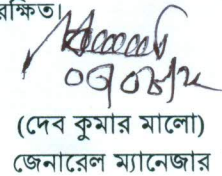 রক্ষিত।
(দেব কুমার মালো)
জেনারেল ম্যানেজার